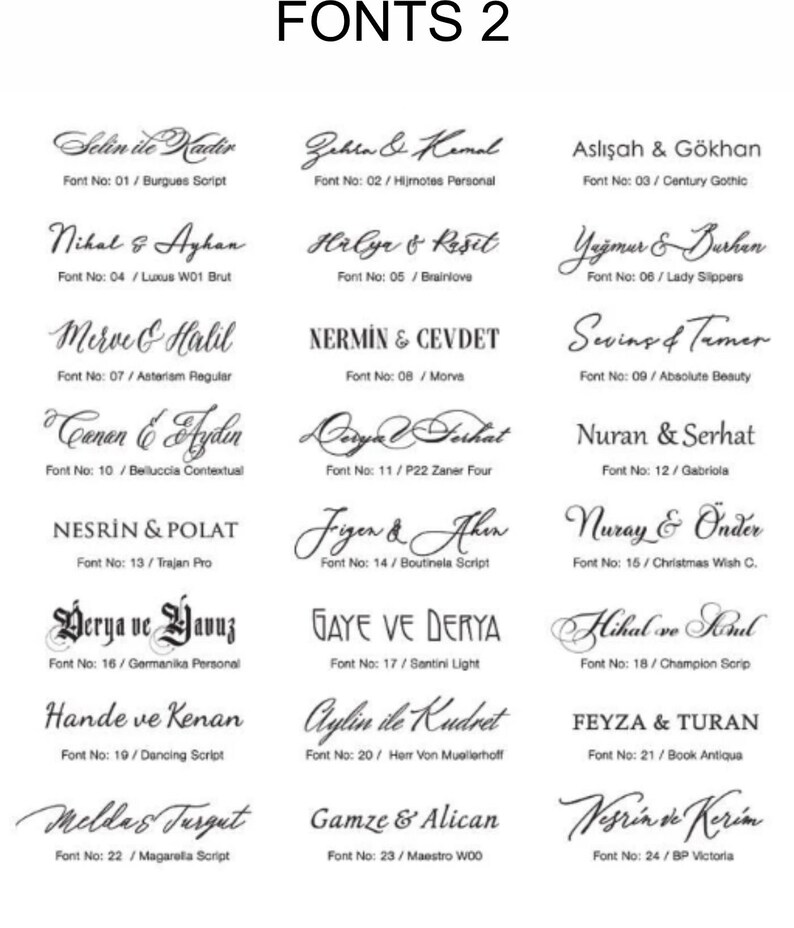 FONTS 2
Selin ile Kadir
Font No: 01 / Burgues Script
Zehra & Kemal
Font No: 02 / Hijrnotes Personal
Aslışah & Gökhan
Font No: 03 / Century Gothic
Nihal & Ayhan
Font No: 04 / Luxus W01 Brut
Hülya & Raşit
Font No: 05 / Brainlove
Yağmur & Burhan
Font No: 06 / Lady Slippers
Merve & Halil
Font No: 07 / Asterism Regular
NERMİN & CEVDET
Font No: 08 / Morva
Sevinç & Tamer
Font No: 09 / Absolute Beauty
Canan & Aydın
Font No: 10 / Belluccia Contextual
Derya & Ferhat
Font No: 11 / P22 Zaner Four
Nuran & Serhat
Font No: 12 / Gabriola
NESRİN & POLAT
Font No: 13 / Trajan Pro
Figen & Akın
Font No: 14 / Boutinela Script
Nuray & Önder
Font No: 15 / Christmas Wish C.
Derya ve Yavuz
Font No: 16 / Germanika Personal
GAYE VE DERYA
Font No: 17 / Santini Light
Hihal ve Anıl
Font No: 18 / Champion Scrip
Hande ve Kenan
Font No: 19 / Dancing Script
Aylin ile Kudret
Font No: 20 / Herr Von Muellerhoff
FEYZA & TURAN
Font No: 21 / Book Antiqua
Melda & Turgut
Font No: 22 / Magarella Script
Gamze & Alican
Font No: 23 / Maestro W00
Neşrin ve Kerim
Font No: 24 / BP Victoria